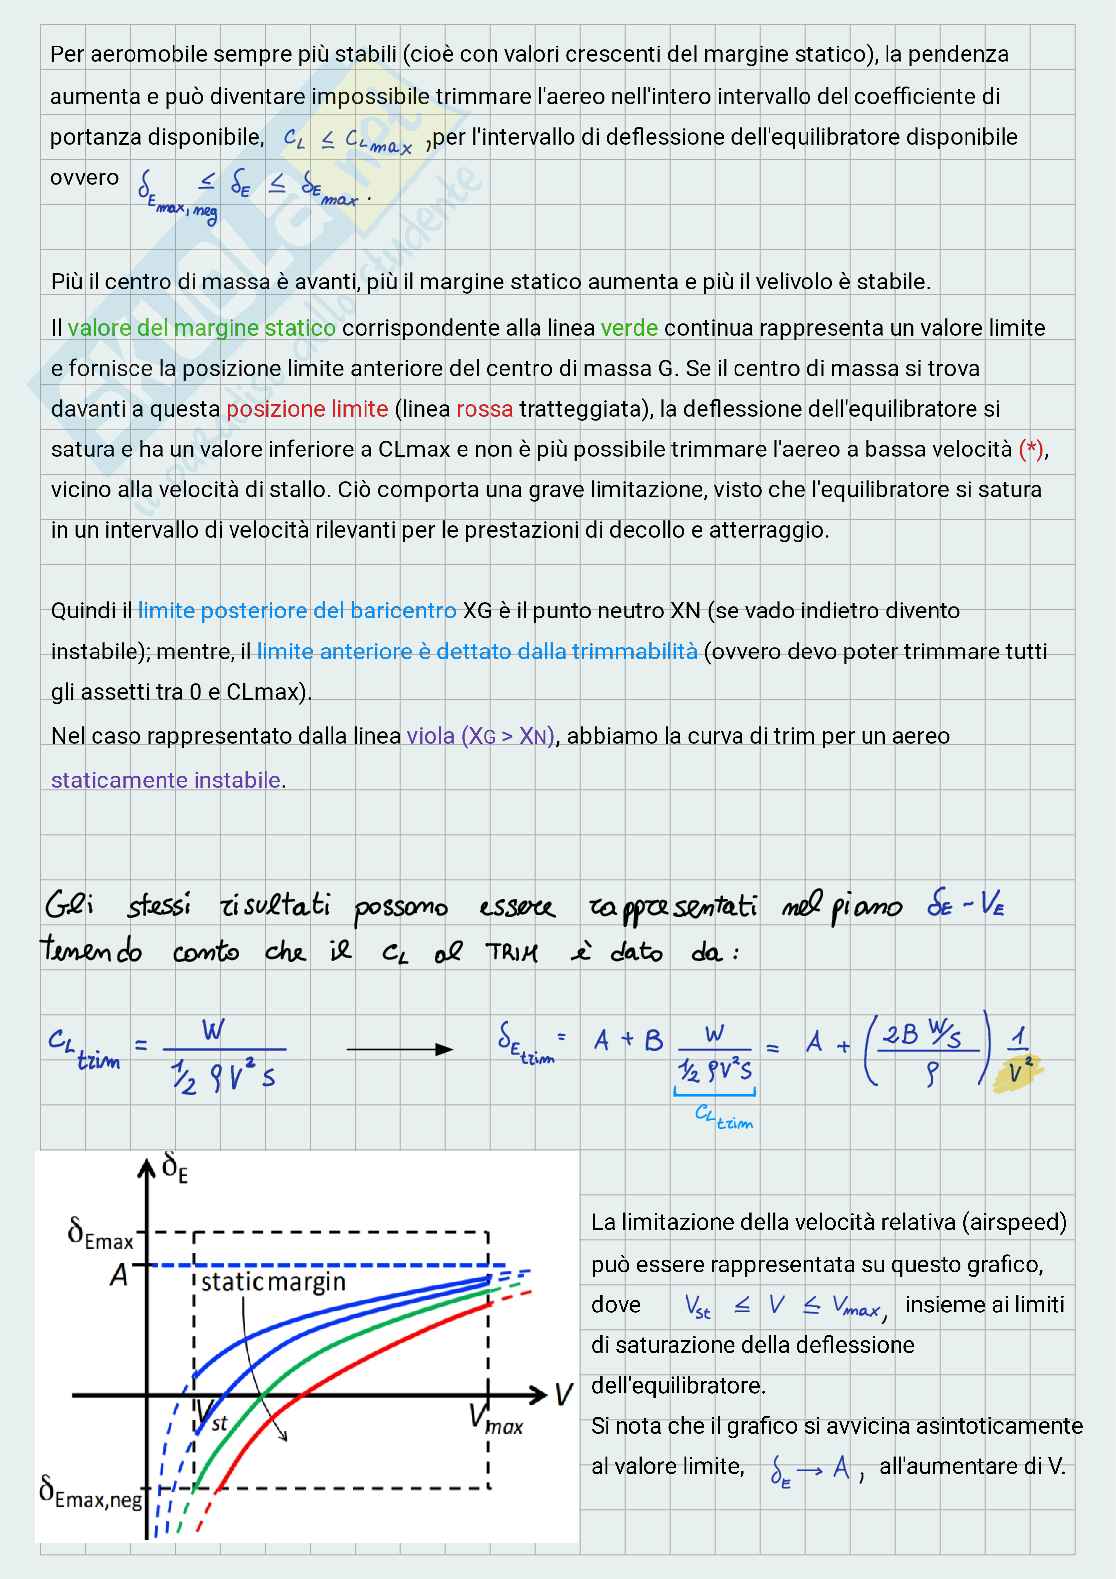 Per aeromobile sempre più stabili (cioè con valori crescenti del margine statico), la pendenza
aumenta e può diventare impossibile trimmare l'aereo nell'intero intervallo del coefficiente di
portanza disponibile, C_L ≤ C_Lmax ,per l'intervallo di deflessione dell'equilibratore disponibile
ovvero δ_Emax,neg ≤ δ_E ≤ δ_Emax .
Più il centro di massa è avanti, più il margine statico aumenta e più il velivolo è stabile.
Il valore del margine statico corrispondente alla linea verde continua rappresenta un valore limite
e fornisce la posizione limite anteriore del centro di massa G. Se il centro di massa si trova
davanti a questa posizione limite (linea rossa tratteggiata), la deflessione dell'equilibratore si
satura e ha un valore inferiore a CLmax e non è più possibile trimmare l'aereo a bassa velocità (*),
vicino alla velocità di stallo. Ciò comporta una grave limitazione, visto che l'equilibratore si satura
in un intervallo di velocità rilevanti per le prestazioni di decollo e atterraggio.
Quindi il limite posteriore del baricentro XG è il punto neutro XN (se vado indietro divento
instabile); mentre, il limite anteriore è dettato dalla trimmabilità (ovvero devo poter trimmare tutti
gli assetti tra 0 e CLmax).
Nel caso rappresentato dalla linea viola (XG > XN), abbiamo la curva di trim per un aereo
staticamente instabile.
Gli stessi risultati possono essere rappresentati nel piano δ_E - V_E
tenendo conto che il C_L al TRIM è dato da:
C_Ltrim = W / (1/2 ρV² S) → δ_Etrim = A + B W / (1/2 ρV²S) = A + (2B W/S / ρ) 1/V²
C_Ltrim
δE
δEmax
A
static margin
V
Vst
Vmax
δEmax,neg
La limitazione della velocità relativa (airspeed)
può essere rappresentata su questo grafico,
dove V_st ≤ V ≤ V_max, insieme ai limiti
di saturazione della deflessione
dell'equilibratore.
Si nota che il grafico si avvicina asintoticamente
al valore limite, δ_E → A , all'aumentare di V.
SKUOLA.net
il paradiso dello studente